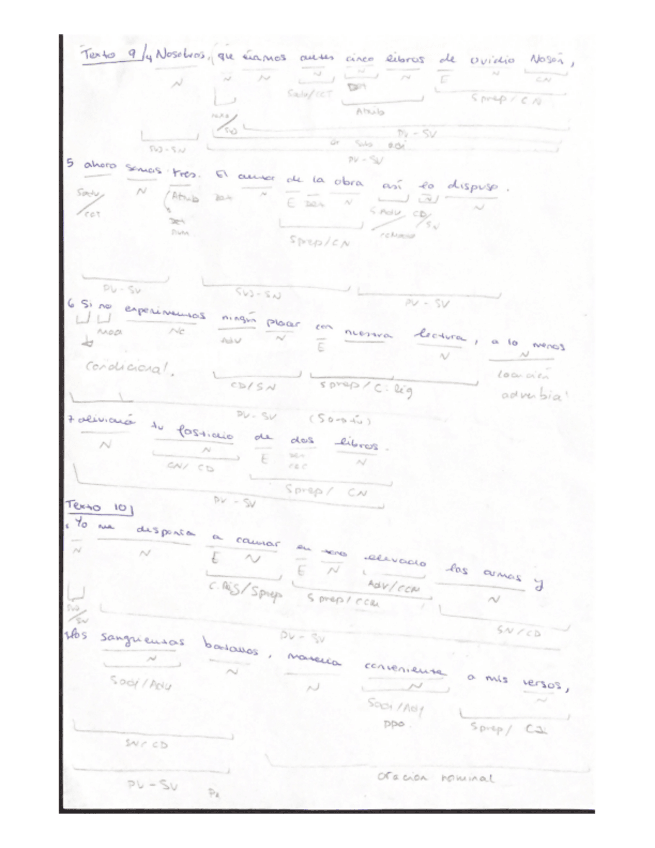 Texto 9/4 Nosotros, que éramos antes cinco libros de Ovidio Nasón,
N N N N N E N CN
Sadv/CCT Det Sprep/CN
Atrib
PV-SV
PV-SV
5 ahora somos tres. El autor de la obra así lo dispuso.
Sadv N (Atrib Det N E Det N SAdv CD/ N
/CCT Det Num SN
Sprep/CN
PV-SV SUJ-SN PV-SV
6 Si no experimentas ningún placer con nuestra lectura, a lo menos
Mod NC Adv N E N N
condicional. locución
CD/SN Sprep/C.Rig adverbial
PV-SV
7 aliviará tu fastidio de dos libros.
N N E Det N
CN/CD
Sprep/CN
PV-SV
Texto 10
1 Yo me disponía a cantar en tono elevado las armas y
N N E N E N N
C.Rég/Sprep Sprep/CCM Adv/CCM
SN/CD
PV-SV
los sangrientas batallas, materia conveniente a mis versos,
N N N N N
Sadj/Ady Sadj/Ady
Sprep/ CI
SN/CD
oración nominal
PV-SV